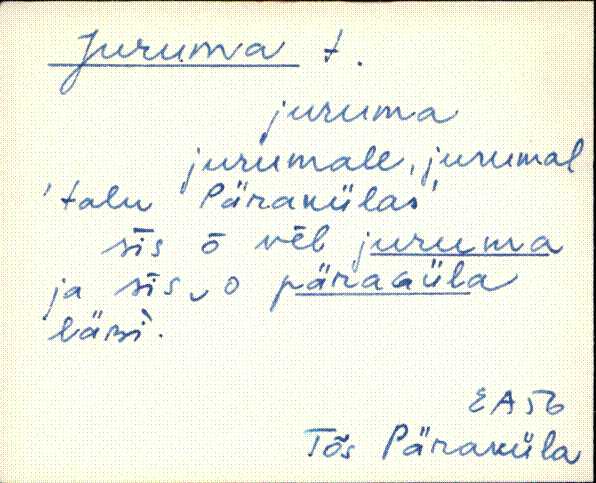 Juruma t.
juruma
jurumale, jurumal
'talu Pärakülas'
sīs ō vēl juruma
ja sīs‿o päraGüla
läBi.
EA56
Tõs Päraküla